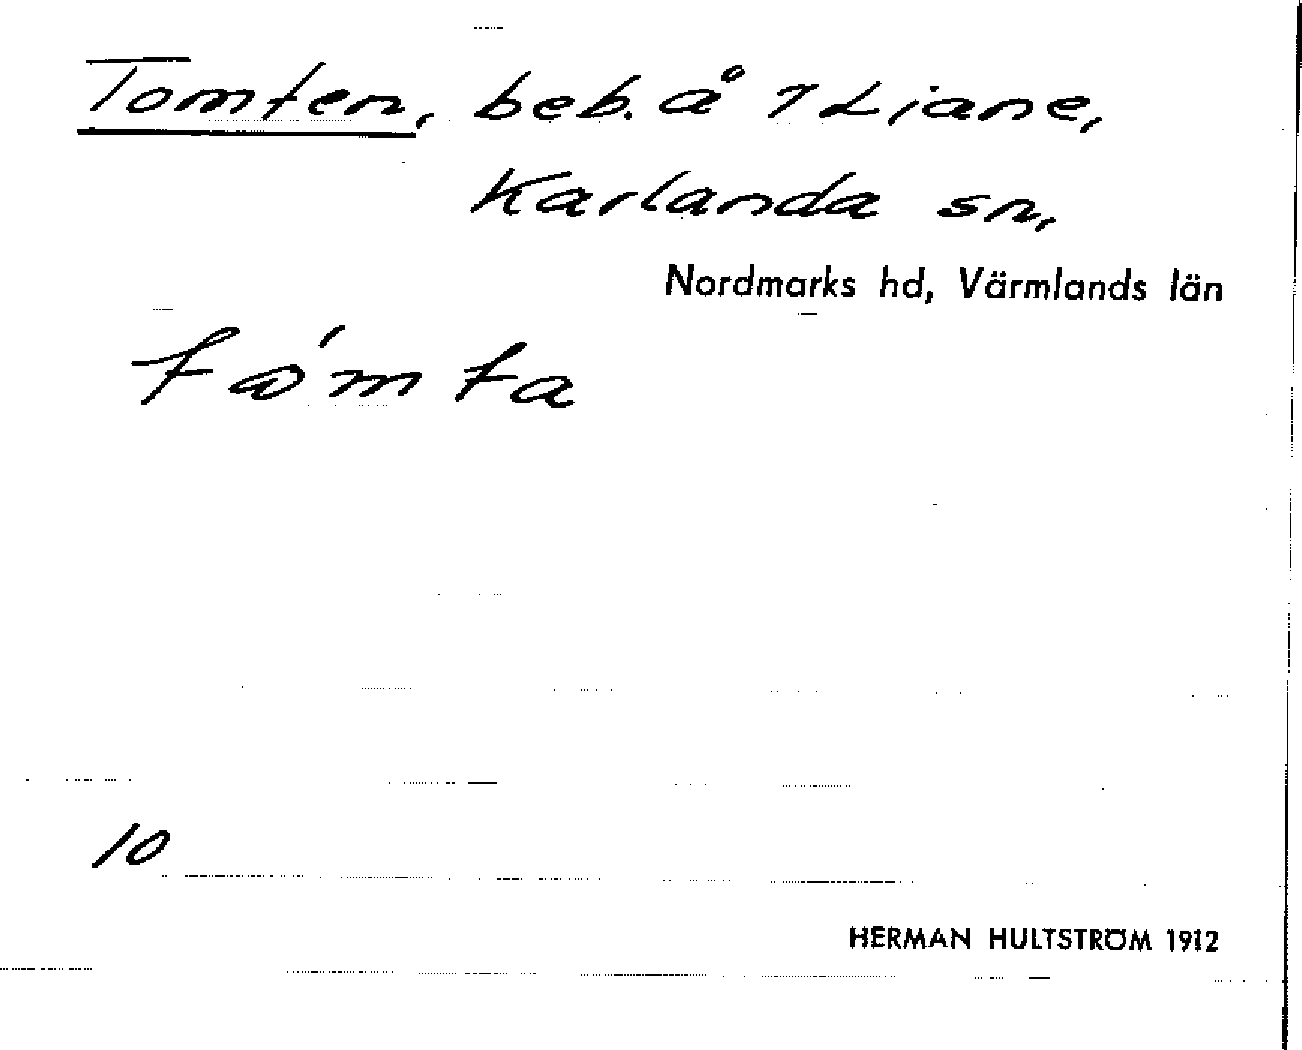 Tomten, beb. å 7 Liane,
Karlanda sn,
Nordmarks hd, Värmlands län
10
HERMAN HULTSTRÖM 1912